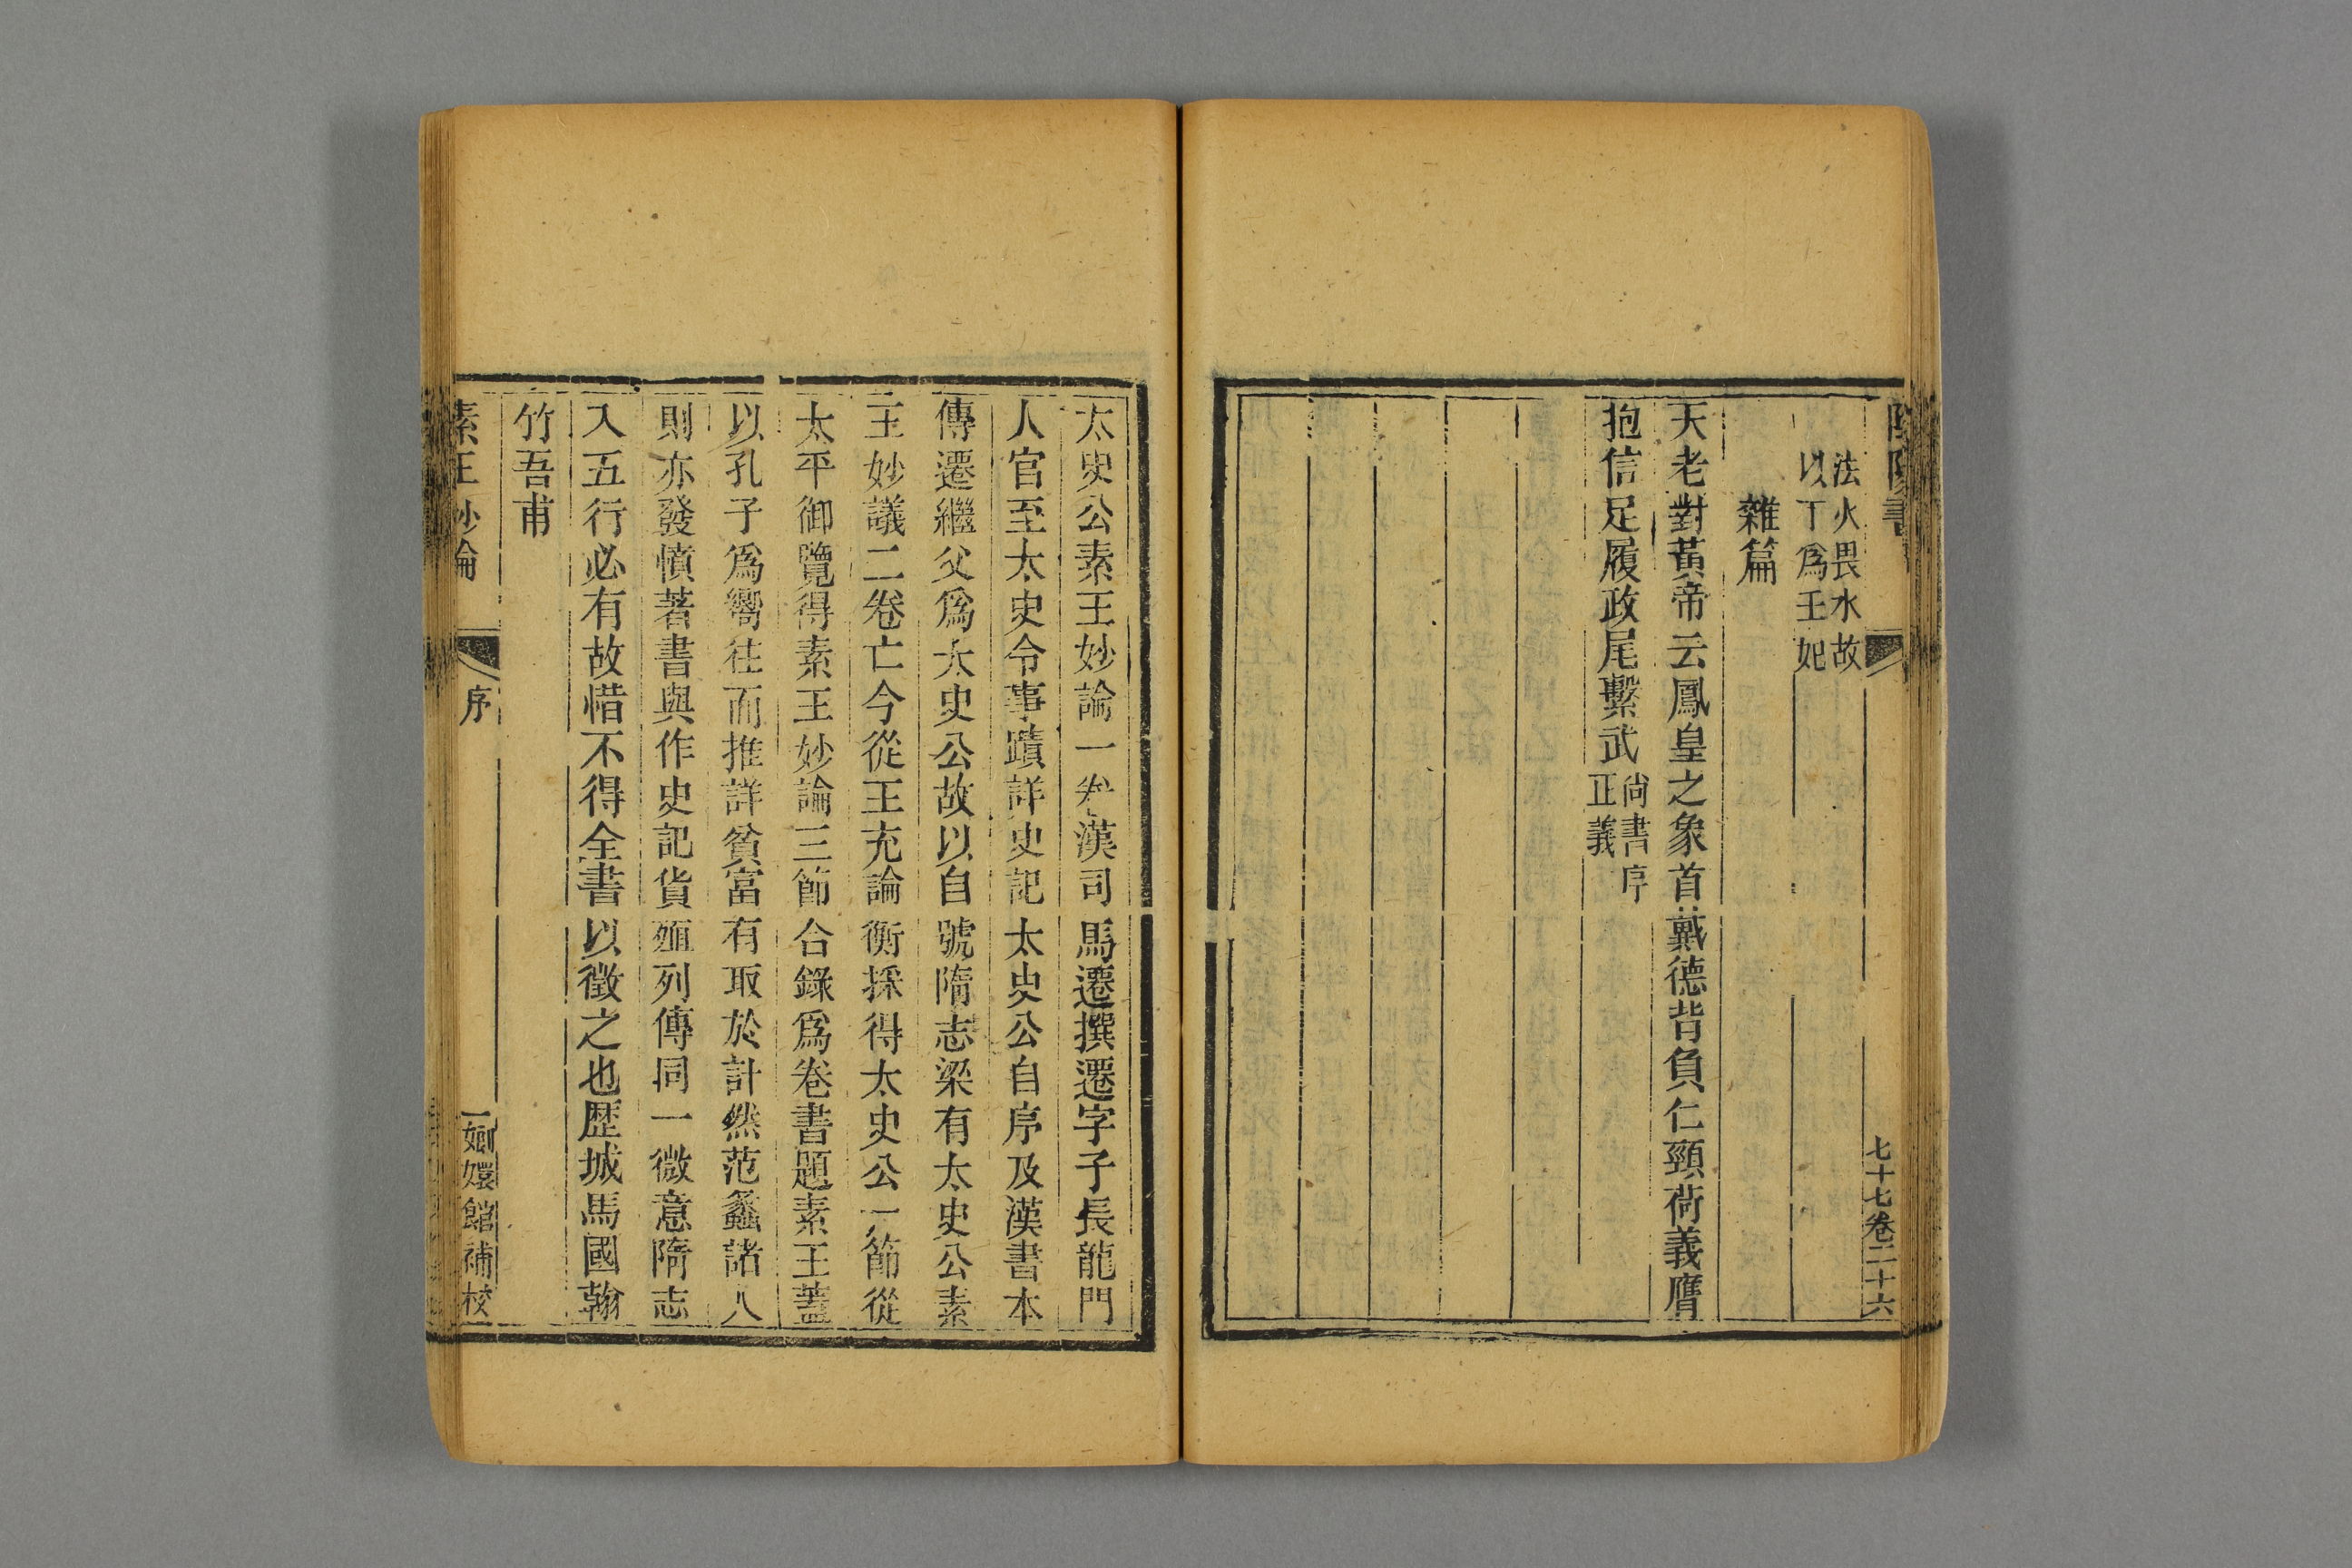 陰陽書
七十七卷二十六
法火畏水故
以丁爲壬妃
雜篇
天老對黃帝云鳳皇之象首戴德背負仁頸荷義膺
抱信足履政尾繫武尚書序
正義
太史公素王妙論一卷漢司馬遷撰遷字子長龍門
人官至太史令事蹟詳史記太史公自序及漢書本
傳遷繼父爲太史公故以自號隋志梁有太史公素
王妙議二卷亡今從王充論衡採得太史公一節從
太平御覽得素王妙論三節合錄爲卷書題素王蓋
以孔子爲嚮往而推詳貧富有取於計然范蠡諸人
則亦發憤著書與作史記貨殖列傳同一微意隋志
入五行必有故惜不得全書以徵之也歴城馬國翰
竹吾甫
素王妙論
序
嫏嬛館補校